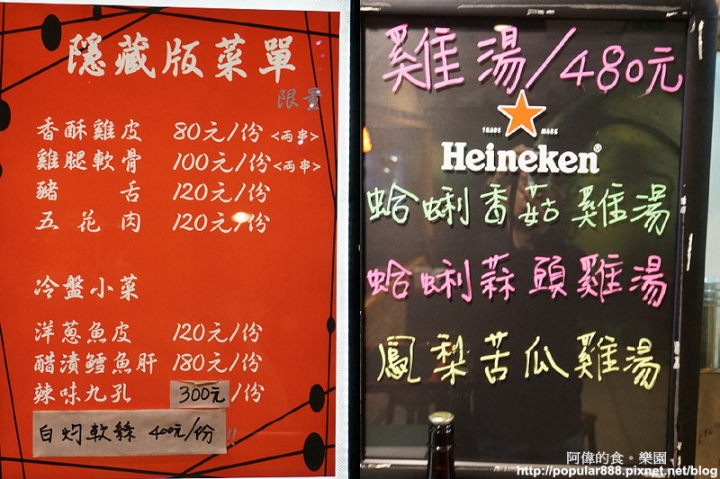 隱藏版菜單
限量
香酥雞皮 80元/份 <兩串>
雞腿軟骨 100元/份 <兩串>
豬舌 120元/份
五花肉 120元/份
冷盤小菜
洋蔥魚皮 120元/份
醋漬鱈魚肝 180元/份
辣味九孔 300元/份
白灼軟絲 400元/份 !!
雞湯/480元
TRADE MARK
Heineken®
蛤蜊香菇雞湯
蛤蜊蒜頭雞湯
鳳梨苦瓜雞湯
阿偉的食。樂園.
http://popular888.pixnet.net/blog